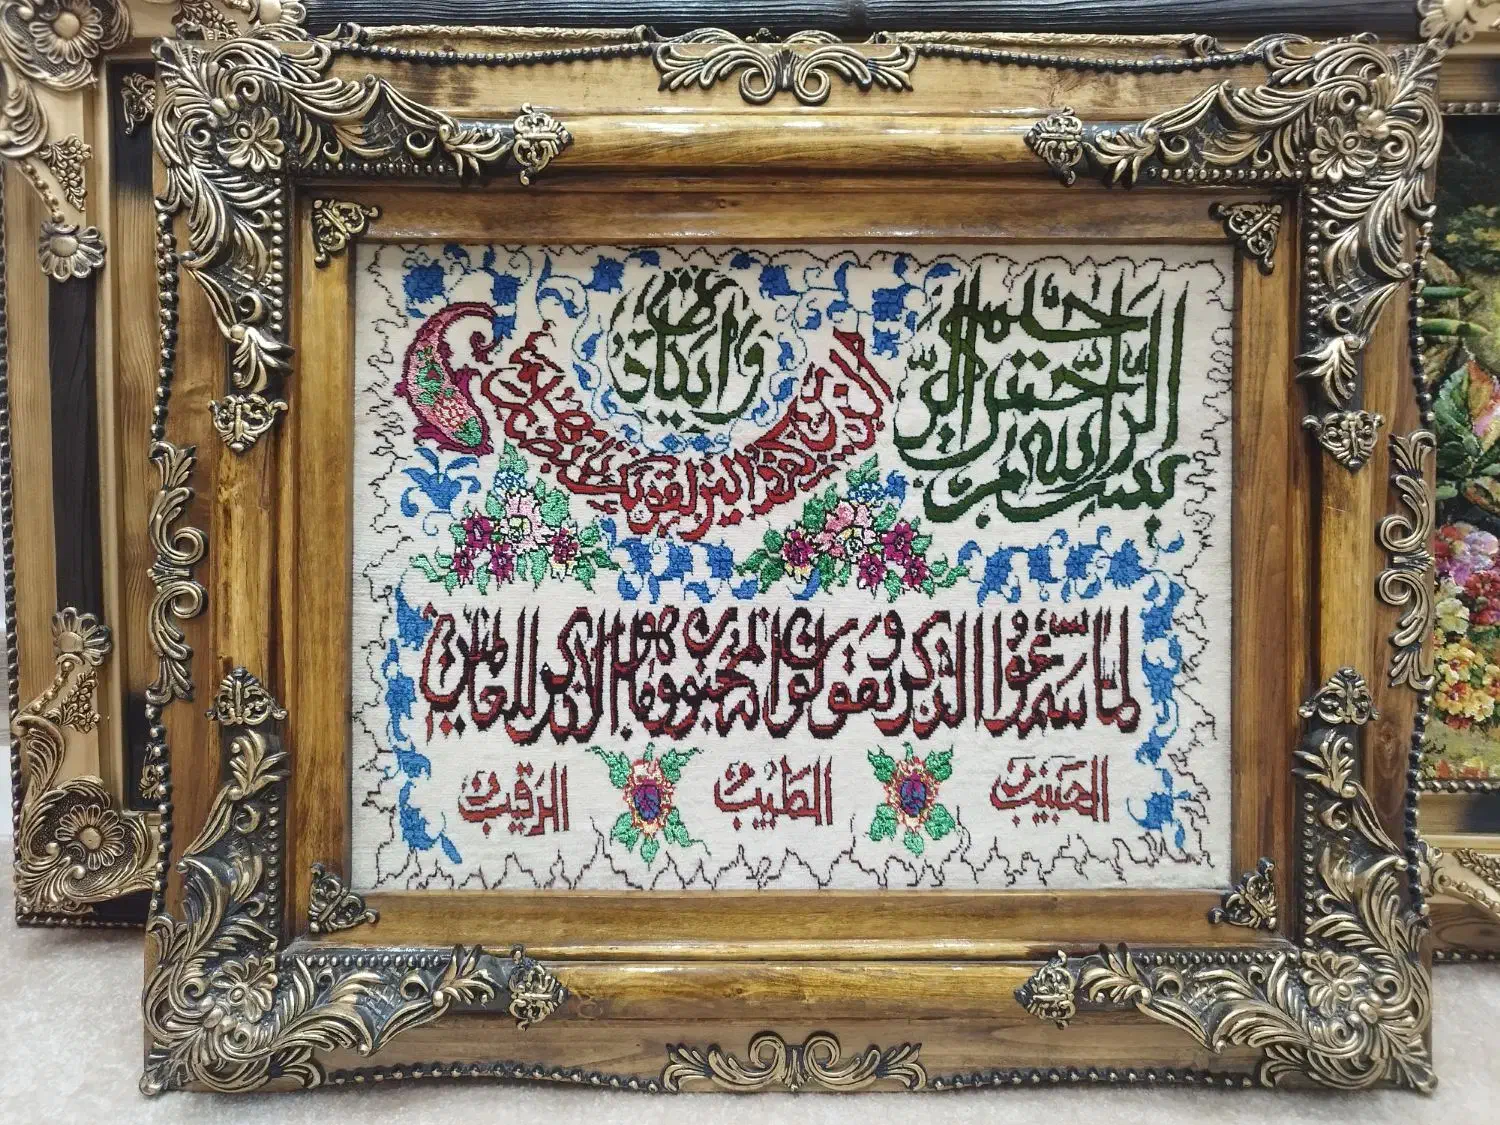 بسم الله الرحمن الرحیم
وان یکاد
الذین کفروا لیزلقونک بابصارهم
لما سمعوا الذکر و یقولون انه لمجنون و ما هو الا ذکر للعالمین
الحبیب
الطبیب
الرقیب